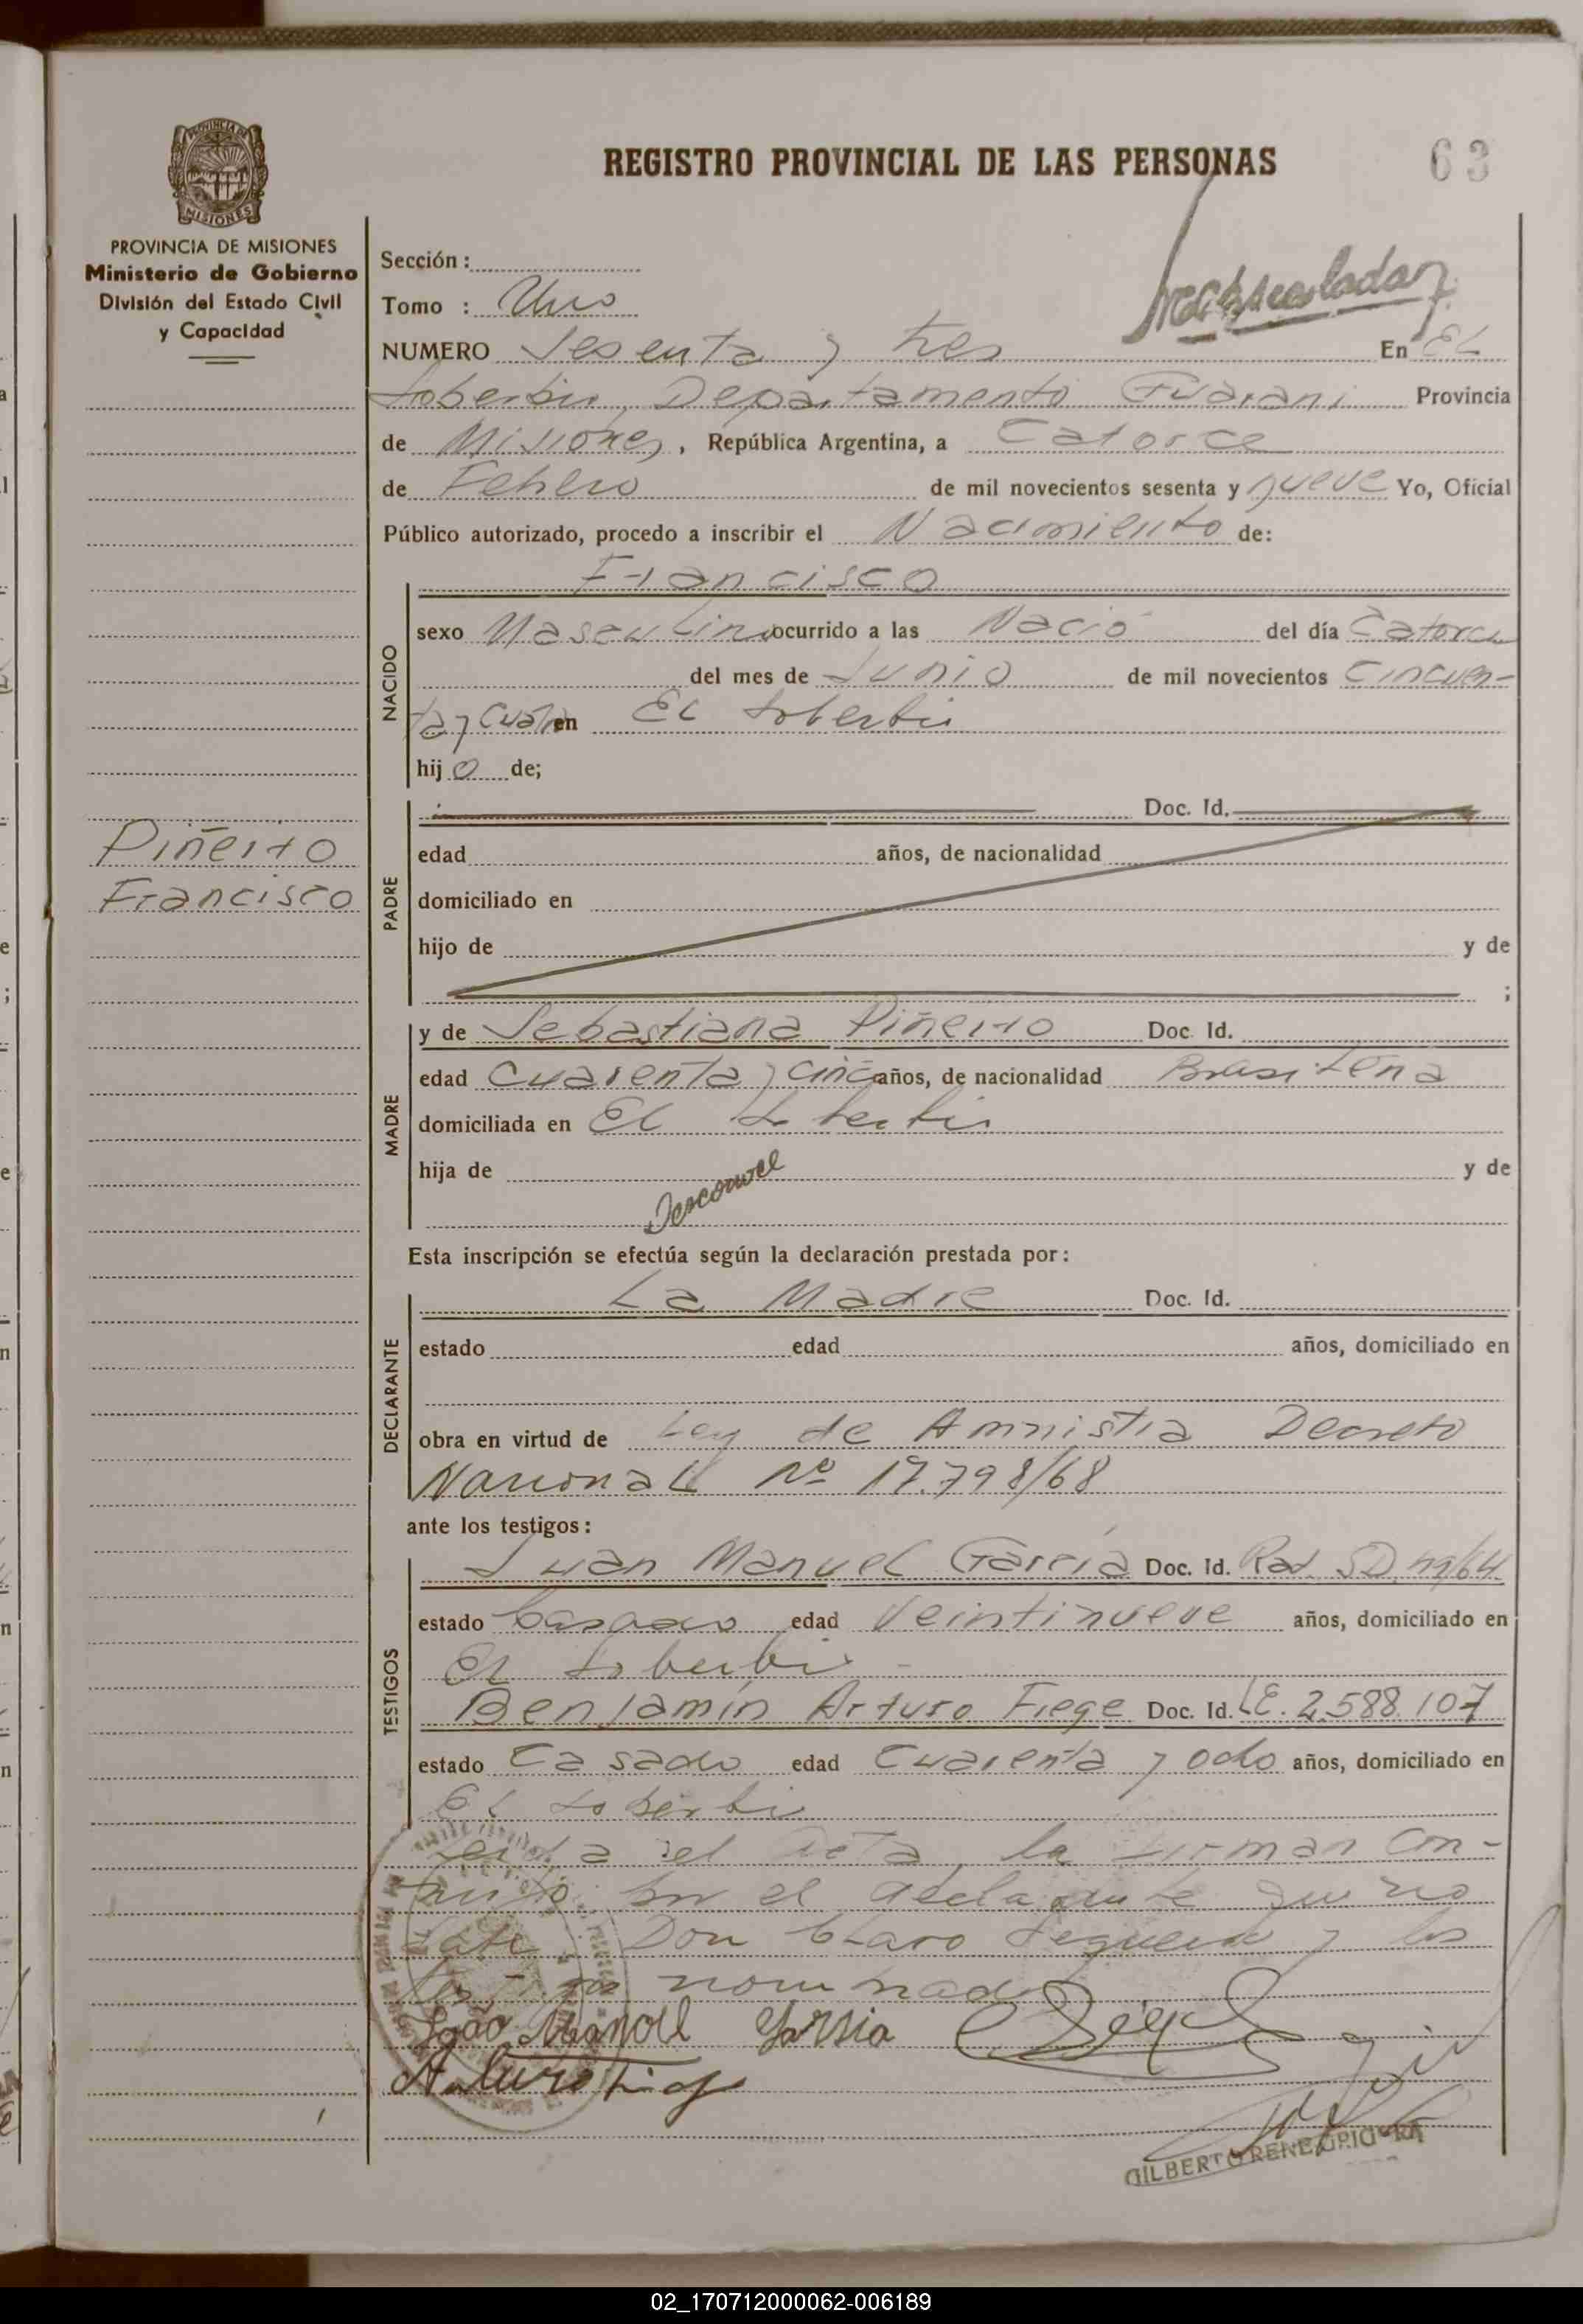 REGISTRO PROVINCIAL DE LAS PERSONAS
63
PROVINCIA DE MISIONES
MISIONES
PROVINCIA DE MISIONES
Ministerio de Gobierno
División del Estado Civil
y Capacidad
Sección :
Tomo : Uno
NUMERO Sesenta y tres En El
Soberbio, Departamento Guarani Provincia
de Misiones, República Argentina, a Catorce
de Febrero de mil novecientos sesenta y nueve Yo, Oficial
Público autorizado, procedo a inscribir el Nacimiento de:
NACIDO
Francisco
sexo Masculino ocurrido a las Nació del día Catorce
del mes de Junio de mil novecientos Cincuen-
ta y Cuatro en El Soberbio
hijo de;
Piñeiro
Francisco
PADRE
Doc. Id.
edad años, de nacionalidad
domiciliado en
hijo de y de
;
MADRE
y de Sebastiana Piñeiro Doc. Id.
edad Cuarenta y Cinco años, de nacionalidad Brasileña
domiciliada en El Soberbio
hija de y de
Desconoce
Esta inscripción se efectúa según la declaración prestada por:
DECLARANTE
La Madre Doc. Id.
estado edad años, domiciliado en
obra en virtud de Ley de Amnistia Decreto
Nacional Nº 17.798/68
ante los testigos:
TESTIGOS
Juan Manuel Garcia Doc. Id. Rad. SD
estado Casado edad Veintinueve años, domiciliado en
El Soberbio
Benjamín Arturo Fiege Doc. Id. LE. 2.588.107
estado Casado edad Cuarenta y ocho años, domiciliado en
El Soberbio
el acta, la firman con-
el que no
Don Claro y los
João Manoel Garsia
GILBERTO RENE
02_170712000062-006189